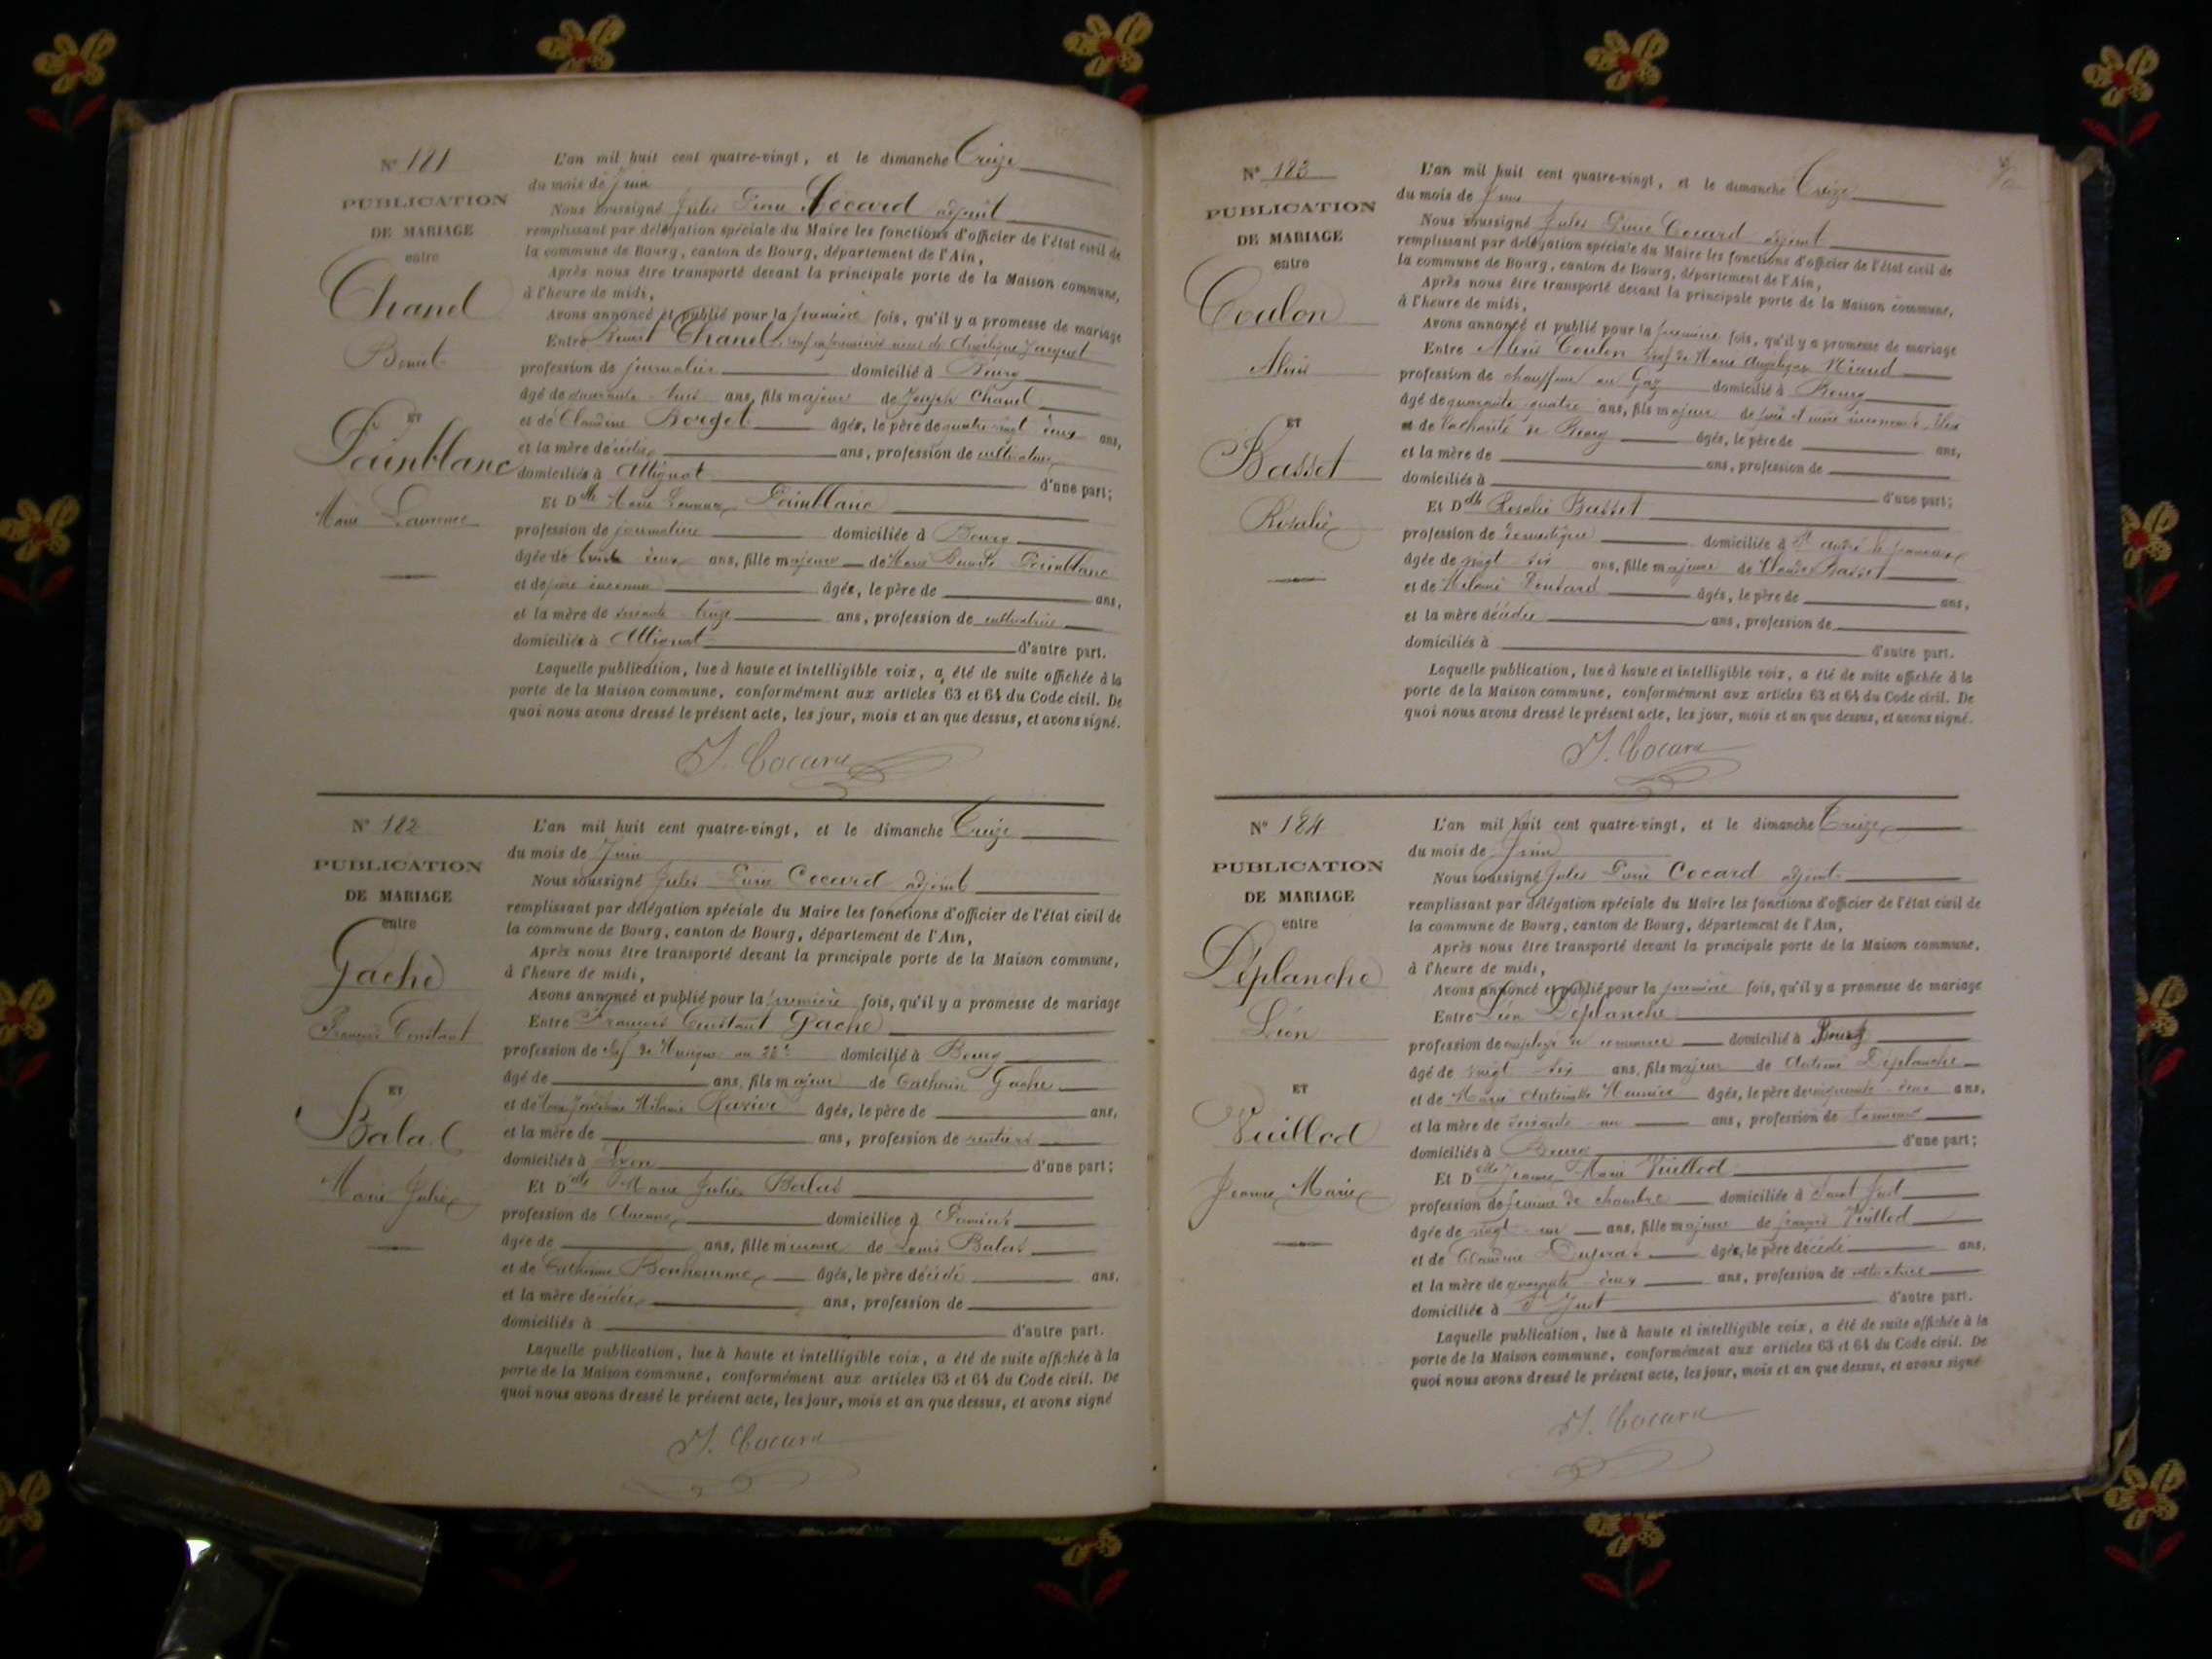 N° 181
PUBLICATION
DE MARIAGE
entre
Chanel
Benoit
ET
Poinblanc
Marie Laurence
L'an mil huit cent quatre-vingt, et le dimanche Treize
du mois de Juin
Nous soussigné Jules Pierre Cocard adjoint
remplissant par délégation spéciale du Maire les fonctions d'officier de l'état civil de
la commune de Bourg, canton de Bourg, département de l'Ain,
Après nous être transporté devant la principale porte de la Maison commune,
à l'heure de midi,
Avons annoncé et publié pour la première fois, qu'il y a promesse de mariage
Entre Benoit Chanel, veuf de Angélique Jacquet
profession de journalier domicilié à Bourg
âgé de ans, fils majeur de Joseph Chanel
et de Claudine Borget âgés, le père de quatre-vingt deux ans,
et la mère décédée ans, profession de cultivateur
domiciliés à Attignat d'une part;
Et Dlle Marie Laurence Poinblanc
profession de journalière domiciliée à Bourg
âgée de trente deux ans, fille majeure de Marie Poinblanc
et de père inconnu âgés, le père de ans,
et la mère de soixante treize ans, profession de cultivatrice
domiciliés à Attignat d'autre part.
Laquelle publication, lue à haute et intelligible voix, a été de suite affichée à la
porte de la Maison commune, conformément aux articles 63 et 64 du Code civil. De
quoi nous avons dressé le présent acte, les jour, mois et an que dessus, et avons signé.
J. Cocard
N° 182
PUBLICATION
DE MARIAGE
entre
Gache
François Constant
ET
Balas
Marie Julie
L'an mil huit cent quatre-vingt, et le dimanche Treize
du mois de Juin
Nous soussigné Jules Pierre Cocard adjoint
remplissant par délégation spéciale du Maire les fonctions d'officier de l'état civil de
la commune de Bourg, canton de Bourg, département de l'Ain,
Après nous être transporté devant la principale porte de la Maison commune,
à l'heure de midi,
Avons annoncé et publié pour la première fois, qu'il y a promesse de mariage
Entre François Constant Gache
profession de chef de Musique au 22e domicilié à Bourg
âgé de ans, fils majeur de Catherin Gache
et de Joséphine Mélanie Ravier âgés, le père de ans,
et la mère de ans, profession de rentiers
domiciliés à Lyon d'une part;
Et Dlle Marie Julie Balas
profession de Aucune domiciliée à
âgée de ans, fille mineure de Louis Balas
et de Catherine Bonhomme âgés, le père décédé ans,
et la mère décédée ans, profession de
domiciliés à d'autre part.
Laquelle publication, lue à haute et intelligible voix, a été de suite affichée à la
porte de la Maison commune, conformément aux articles 63 et 64 du Code civil. De
quoi nous avons dressé le présent acte, les jour, mois et an que dessus, et avons signé
J. Cocard
N° 183
PUBLICATION
DE MARIAGE
entre
Coulon
Alexis
ET
Basset
Rosalie
L'an mil huit cent quatre-vingt, et le dimanche Treize
du mois de Juin
Nous soussigné Jules Pierre Cocard adjoint
remplissant par délégation spéciale du Maire les fonctions d'officier de l'état civil de
la commune de Bourg, canton de Bourg, département de l'Ain,
Après nous être transporté devant la principale porte de la Maison commune,
à l'heure de midi,
Avons annoncé et publié pour la première fois, qu'il y a promesse de mariage
Entre Alexis Coulon veuf de Marie Angélique Niaud
profession de chauffeur au Gaz domicilié à Bourg
âgé de quarante quatre ans, fils majeur de père et mère inconnus,
et de la charité de Bourg âgés, le père de ans,
et la mère de ans, profession de
domiciliés à d'une part;
Et Dlle Rosalie Basset
profession de domestique domiciliée à St André le
âgée de vingt six ans, fille majeure de Claude Basset
et de Mélanie âgés, le père de ans,
et la mère décédée ans, profession de
domiciliés à d'autre part.
Laquelle publication, lue à haute et intelligible voix, a été de suite affichée à la
porte de la Maison commune, conformément aux articles 63 et 64 du Code civil. De
quoi nous avons dressé le présent acte, les jour, mois et an que dessus, et avons signé.
J. Cocard
N° 184
PUBLICATION
DE MARIAGE
entre
Déplanche
Léon
ET
Vuillod
Jeanne Marie
L'an mil huit cent quatre-vingt, et le dimanche Treize
du mois de Juin
Nous soussigné Jules Pierre Cocard adjoint
remplissant par délégation spéciale du Maire les fonctions d'officier de l'état civil de
la commune de Bourg, canton de Bourg, département de l'Ain,
Après nous être transporté devant la principale porte de la Maison commune,
à l'heure de midi,
Avons annoncé et publié pour la première fois, qu'il y a promesse de mariage
Entre Léon Déplanche
profession de employé de commerce domicilié à Bourg
âgé de vingt six ans, fils majeur de Antoine Déplanche
et de Marie Antoinette Meunier âgés, le père de cinquante deux ans,
et la mère de soixante un ans, profession de
domiciliés à Bourg d'une part;
Et Dlle Jeanne Marie Vuillod
profession de femme de chambre domiciliée à Saint Just
âgée de vingt un ans, fille majeure de Vuillod
et de Claudine âgés, le père décédé ans,
et la mère de quarante deux ans, profession de cultivatrice
domiciliée à St Just d'autre part.
Laquelle publication, lue à haute et intelligible voix, a été de suite affichée à la
porte de la Maison commune, conformément aux articles 63 et 64 du Code civil. De
quoi nous avons dressé le présent acte, les jour, mois et an que dessus, et avons signé
J. Cocard